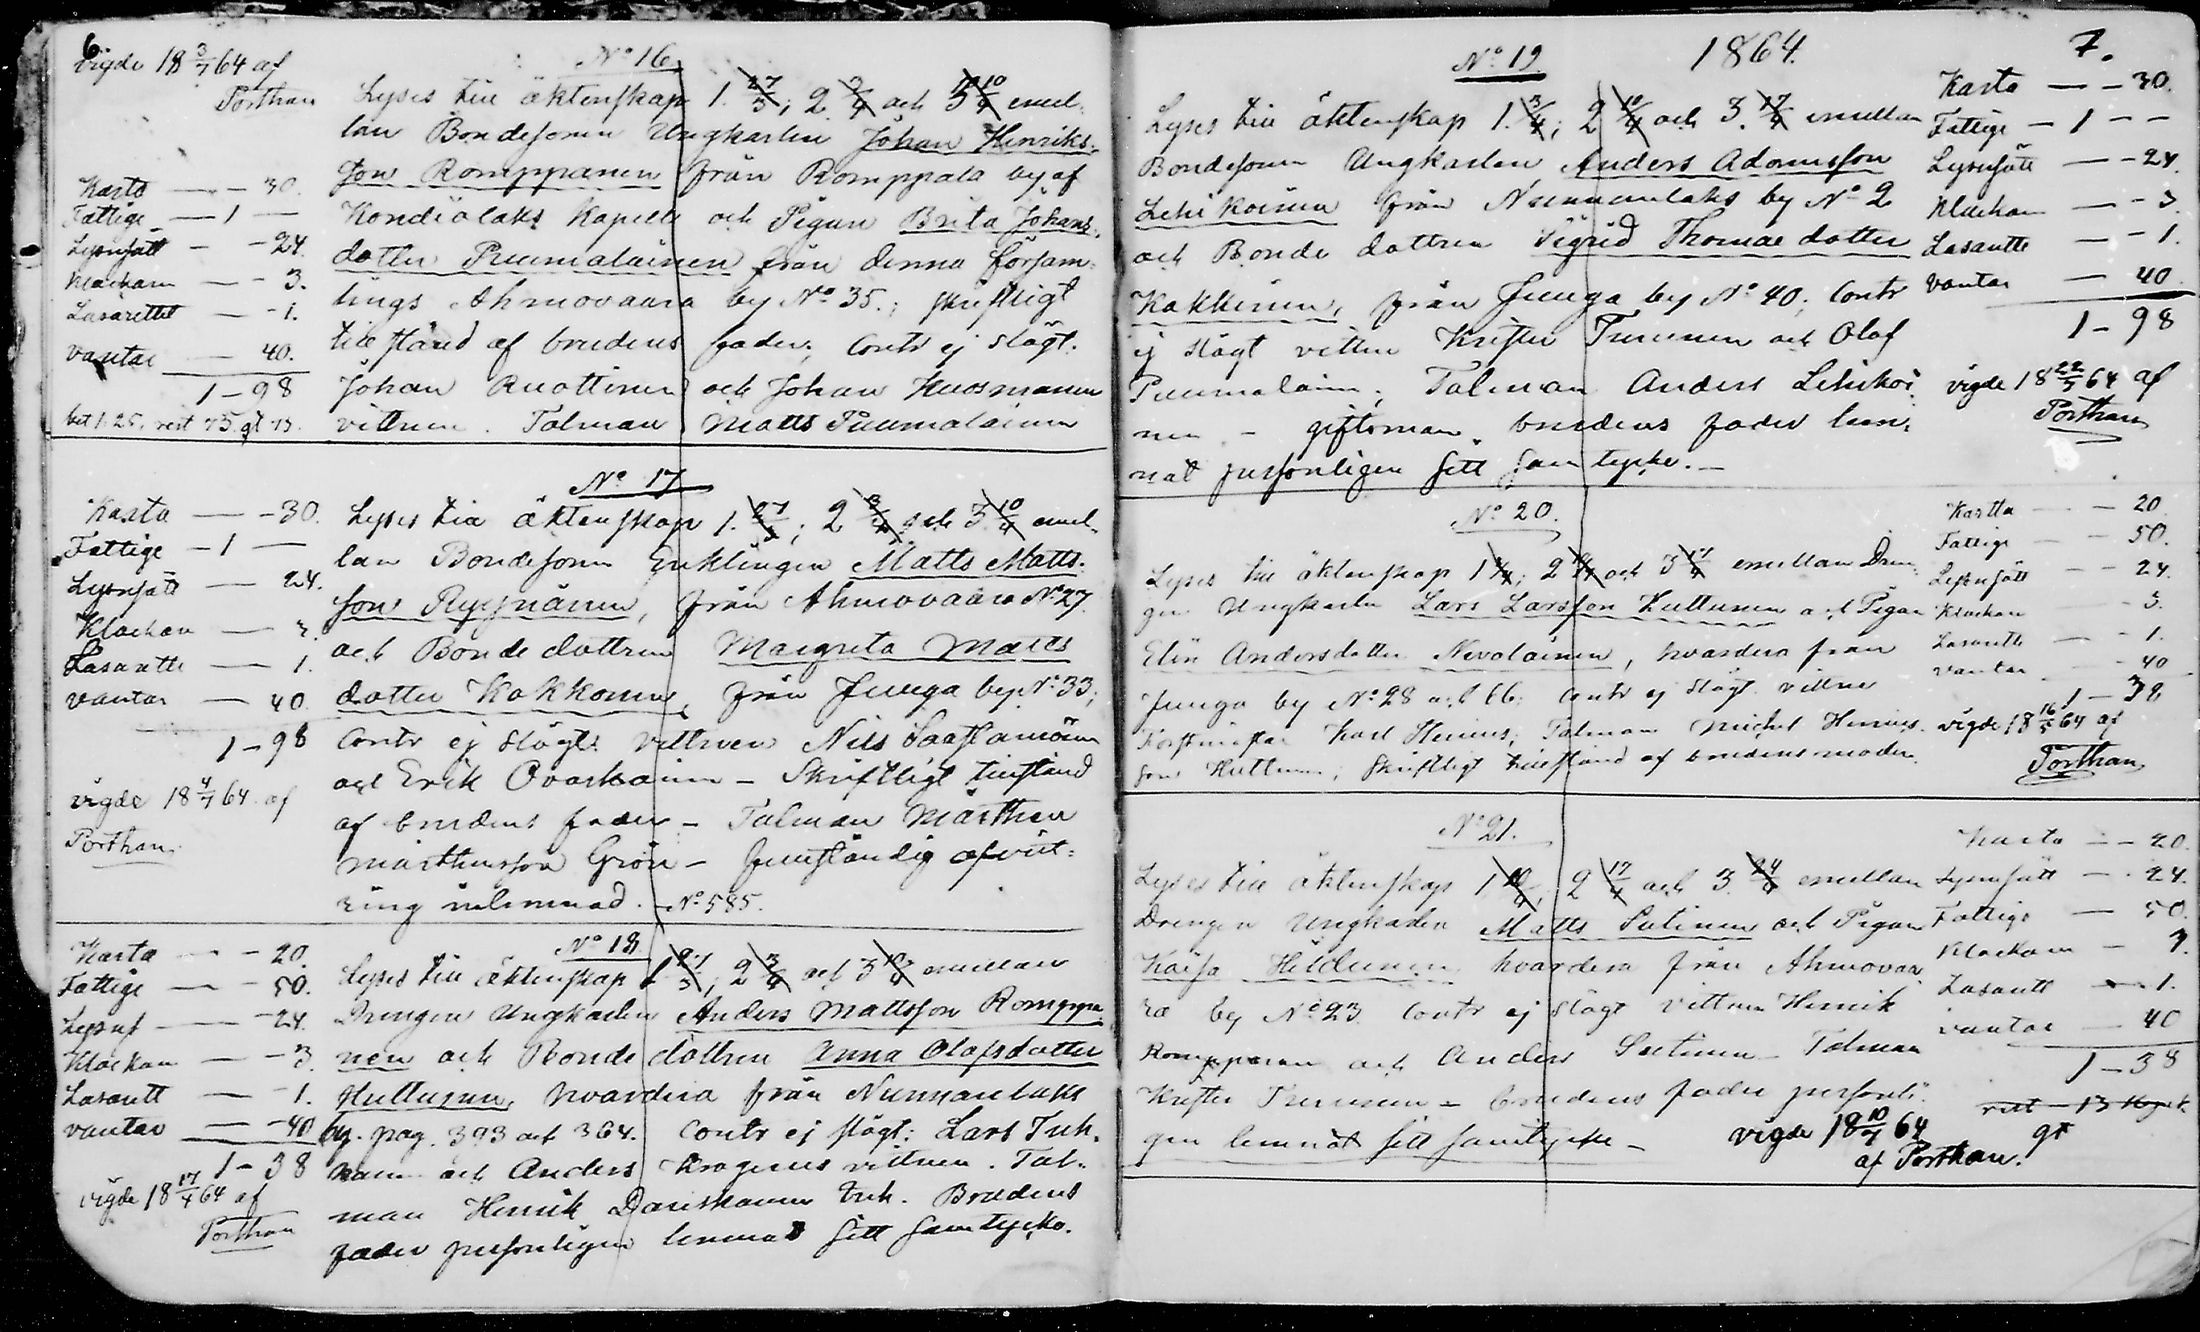 6.
vigde 18 3/7 64 af
Porthan
No 16.
Lyses till äktenskap 1. 27/3; 2 3/4 och 3 10/4 emel-
lan Bondesonen Ungkarlen Johan Henriks-
son Romppanen från Romppala by af
Kondiolaks Kapell och Pigan Brita Johans-
dotter Puumalainen från denna försam-
lings Ahmovaara by No 35.; skriftligt
tillstånd af brudens fader; Contr ej slägt.
Johan Ruottinen och Johan Huosmanen
vittnen. Talman Matts Puumalainen
Karta — - 30.
Fattige — 1 —
Lysnsätt - - 24.
Klockarn — - 3.
Lasarettet — - 1.
vantar — 40.
1 - 98
bet 1.25. rest 73. gt 73.
No 17
Lyses till äktenskap 1. 27/3; 2 3/4 och 3 10/4 emel-
lan Bondesonen Enklingen Matts Matts-
son Ryynänen, från Ahmovaara No 27.
och Bonde dottren Margreta Matts
dotter Kokkonen, från Juuga by No 33;
Contr ej slägt. vittnen Nils Saastamoinen
och Erik Ovaskainen - Skriftligt tillstånd
af brudens fader - Talman Mårthen
Mårthensson Grön -
ring inlemnad. - No 585.
Karta — - 30.
Fattige - 1 —
Lysnsätt — 24.
Klockan — 3.
Lasarette — 1.
vantar — 40
1 - 98
vigde 18 4/7 64. af
Porthan
No 18.
Lyses till äktenskap 1 27/3; 2 3/4 och 3 10/4 emellan
Drengen Ungkarlen Anders Mattsson Romppa
nen och Bonde dottren Anna Olofsdotter
Huttunen, hvardera från Nunnanlaks
by. pag. 393 och 364. Contr ej slägt: Lars Tuh-
kanen och Anders Krogerus vittnen. Tal-
man Henrik Daniskanen Tuh. Brudens
fader personligen lemnat sitt samtycke.
Karta — - 20.
Fattige — - 50.
Lysnf — 24.
Klockan — - 3.
Lasarett — 1.
vantar — - 40
1 - 38
vigde 18 17/4 64 af
Porthan
1864.
7.
No 19.
Lyses till äktenskap 1. 3/4; 2 10/4 och 3. 17/4 emellan
Bondesonen Ungkarlen Anders Adamsson
Lehikoinen från Nunnanlaks by No 2
och Bonde dottren Sigrid Thomae dotter
Kakkinen, från Juuga by No 40; Contr
ej slägt vittnen Krister Turunen och Olof
Puumalainen; Talman Anders Lehikoi-
nen. - giftoman brudens fader lem-
nat personligen sitt samtycke. -
Karta — - 30.
Fattige - 1 - -
Lysnsätt — - 24.
Klockan — - 3
Lasarette — - 1.
vantar — 40
1 - 98
vigde 18 22/5 64 af
Porthan
No 20.
Lyses till äktenskap 1 3/4; 2 10/4 och 3 17/4 emellan Dren-
gen Ungkarlen Lars Larsson Huttunen och Pigan
Elin Andersdotter Nevalainen, hvardera från
Juuga by No 28 och 66. Contr ej slägt. vittne
Karl Henius; Talman Michel Henriks-
son Huttunen; Skriftligt tillstånd af brudens moder.
Kartta — - 20
Fattige - - 50.
Lysnsätt - - 24.
Klockan - 3.
Lasarette — - 1.
vantar - 40
1 - 38
vigde 18 16/5 64 af
Porthan
No 21.
Lyses till äktenskap 1 10/4, 2 17/4 och 3. 24/4 emellan
Drengen Ungkarlen Matts Sutinen och Pigan
Kaisa Hildunen, hvardera från Ahmovaa
ra by No 23. Contr ej slägt vittnen Henrik
Romppanen och Anders Sutinen - Talman
Krister Turunen - brudens fader personli-
gen lemnat sitt samtycke -
Karta — - 20.
Lysnsätt — 24.
Fattige — 50.
Klockan - 3.
Lasarett — 1.
vantar — 40
1 - 38
rest - 13 Kop
gt
vigde 18 10/7 64
af Porthan.